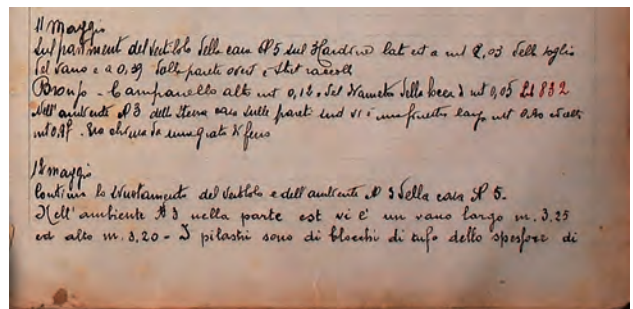 11 Maggio
Sul paviment del Vestibolo della casa N 5 sul 3 Cardine lat est a mt 2,03 della soglia
del vano e a 0,39 dalla parete ovest è stat raccolt
Bronzo - Campanello alto mt 0,12. del diametro della bocca di mt 0,05 832
Nell'ambiente N 3 della stessa casa sulla parete sud vi è una finestra larga mt 0.90 ed alta
mt 0.97. Era chiusa da una grata di ferro
12 maggio
Continua lo svuotamento del Vestibolo e dell'ambiente N 3 della casa N 5.
Nell'ambiente N 3 nella parte est vi è un vano largo m. 3,25
ed alto m. 3,20 - I pilastri sono di blocchi di tufo dello spessore di